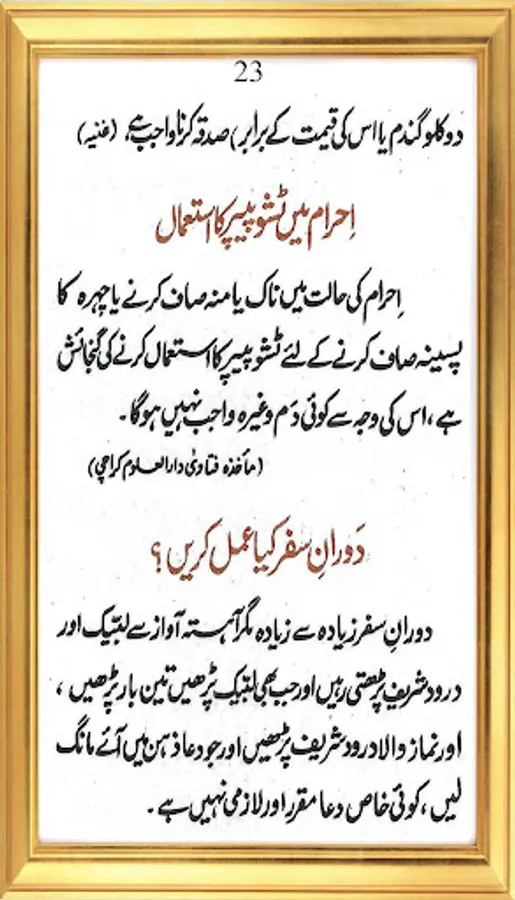 23
دو کلو گندم یا اس کی قیمت کے برابر) صدقہ کرنا واجب ہے، (غنیہ)
اِحرام میں ٹشو پیپر کا استعمال
اِحرام کی حالت میں ناک یا منہ صاف کرنے یا چہرہ کا
پسینہ صاف کرنے کے لئے ٹشو پیپر کا استعمال کرنے کی گنجائش
ہے، اس کی وجہ سے کوئی دَم وغیرہ واجب نہیں ہوگا۔
(مأخذہ فتاویٰ دارالعلوم کراچی)
دَورانِ سفر کیا عمل کریں؟
دورانِ سفر زیادہ سے زیادہ مگر آہستہ آواز سے لبّیک اور
درود شریف پڑھتی رہیں اور جب بھی لبّیک پڑھیں تین بار پڑھیں،
اور نماز والا درود شریف پڑھیں اور جو دعا ذہن میں آئے مانگ
لیں، کوئی خاص دعا مقرر اور لازمی نہیں ہے۔